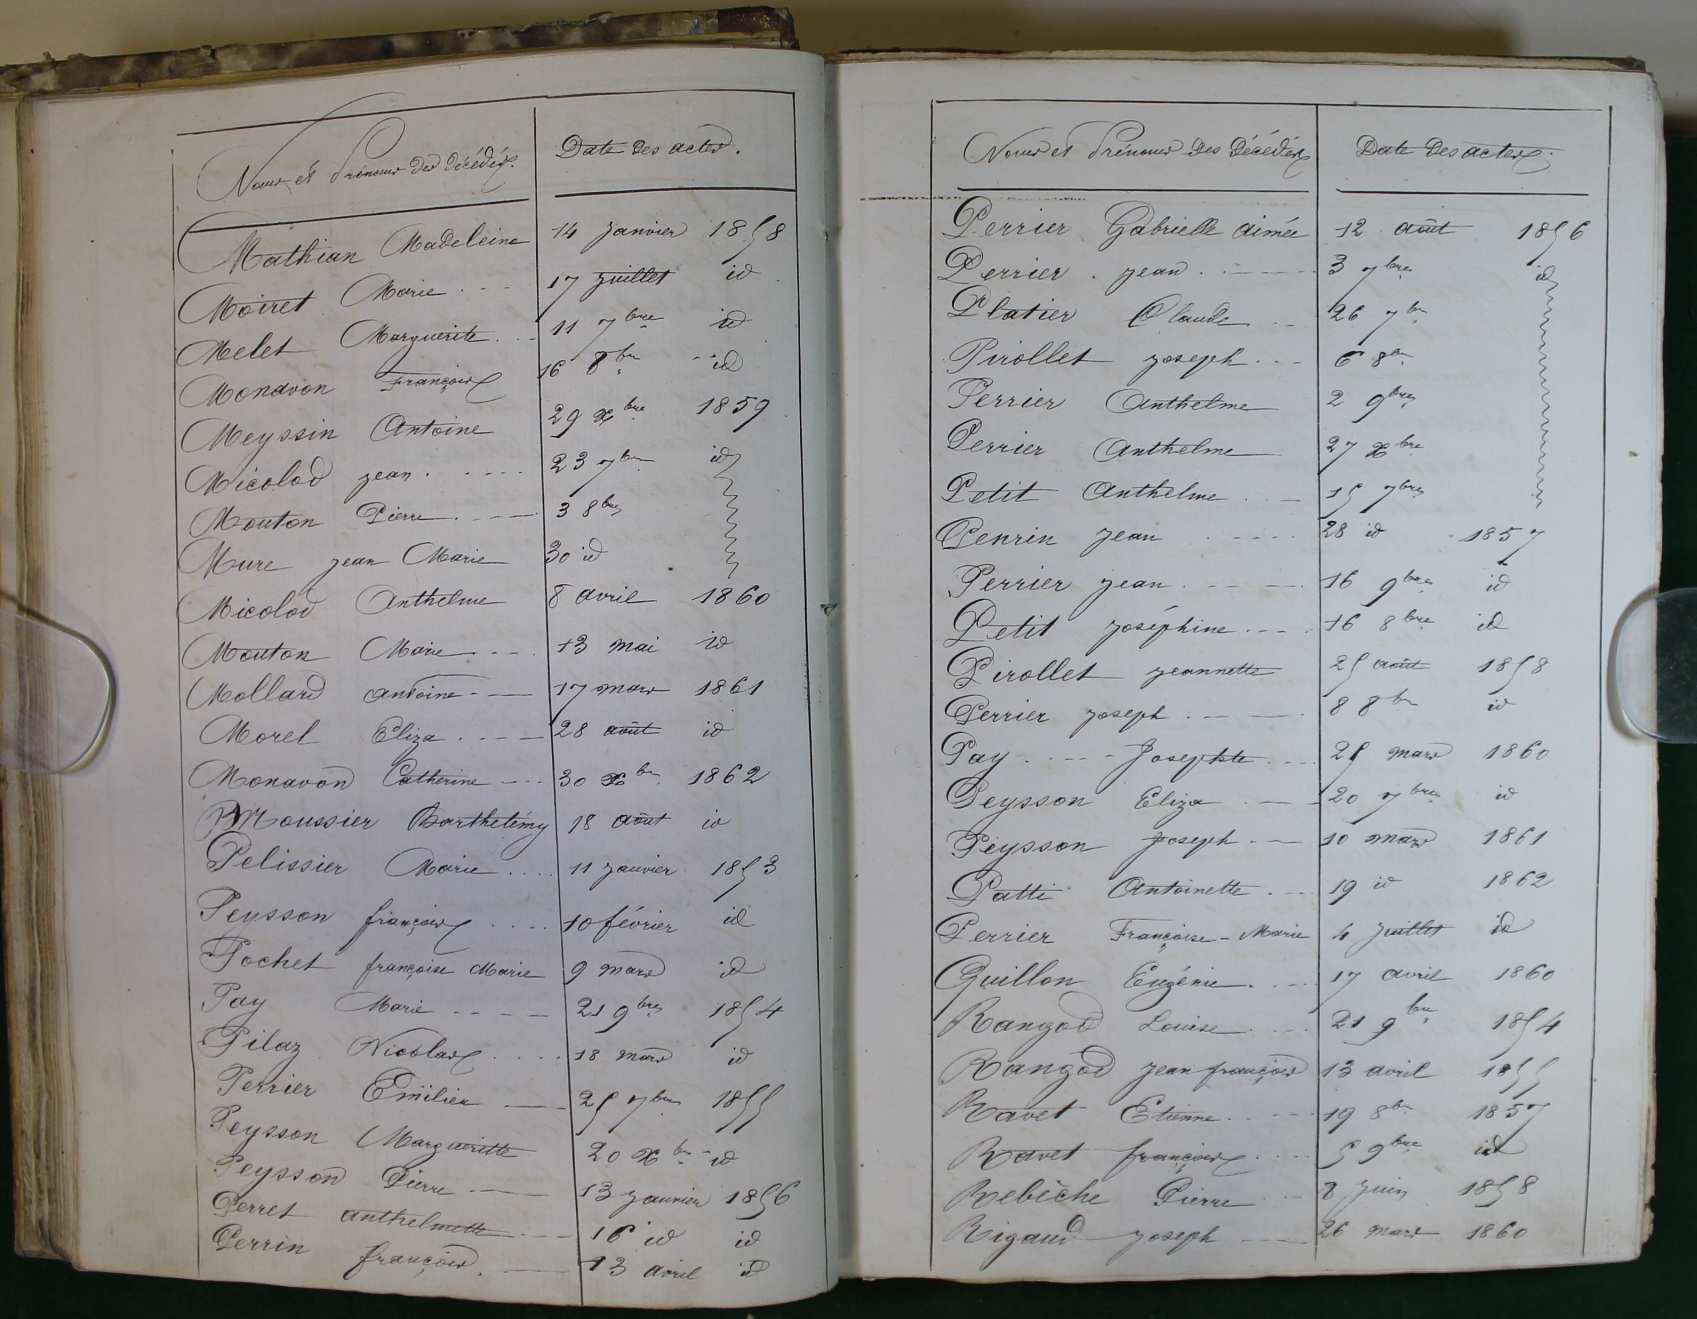 Noms et Prénoms des Décédés. Date des actes.
Mathian Madeleine 14 janvier 1858
Moiret Marie 17 juillet id
Melet Marguerite 11 7bre id
Monavon François 16 8bre id
Meyssin Antoine 29 Xbre 1859
Micolod jean 23 7bre id
Mouton Pierre 3 8bre
Mure jean Marie 30 id
Micolod Anthelme 8 avril 1860
Mouton Marie 13 mai id
Mollard antoine 17 mars 1861
Morel Eliza 28 août id
Monavon Catherine 30 Xbre 1862
Moussier Barthelémy 18 août id
Pelissier Marie 11 janvier 1853
Peysson françois 10 février id
Pochet françoise Marie 9 mars id
Pay Marie 21 9bre 1854
Pilaz Nicolas 18 mars id
Perrier Emilien 25 7bre 1855
Peysson Margueritte 20 Xbre id
Peysson Pierre 13 janvier 1856
Perret anthelmette 16 id id
Perrin françois 13 avril id
Noms et Prénoms des Décédés Date des actes.
Perrier Gabrielle aimée 12 août 1856
Perrier jean 3 7bre id
Platier Claude 26 7bre
Pirollet joseph 6 8bre
Perrier Anthelme 2 9bre
Perrier Anthelme 27 Xbre
Petit Anthelme 15 7bre
Penrin jean 28 id 1857
Perrier jean 16 9bre id
Petit joséphine 16 8bre id
Pirollet jeannette 25 août 1858
Perrier joseph 8 8bre id
Pay Josephte 25 mars 1860
Peysson Eliza 20 7bre id
Peysson joseph 10 mars 1861
Patti Antoinette 19 id 1862
Perrier Françoise-Marie 4 juillet id
Quillon Eugénie 17 avril 1860
Rangod Louise 21 9bre 1854
Rangod jean françois 13 avril 1855
Ravet Etienne 19 8bre 1857
Ravet françois 5 9bre id
Rebèche Pierre 8 juin 1858
Rigaud joseph 26 mars 1860